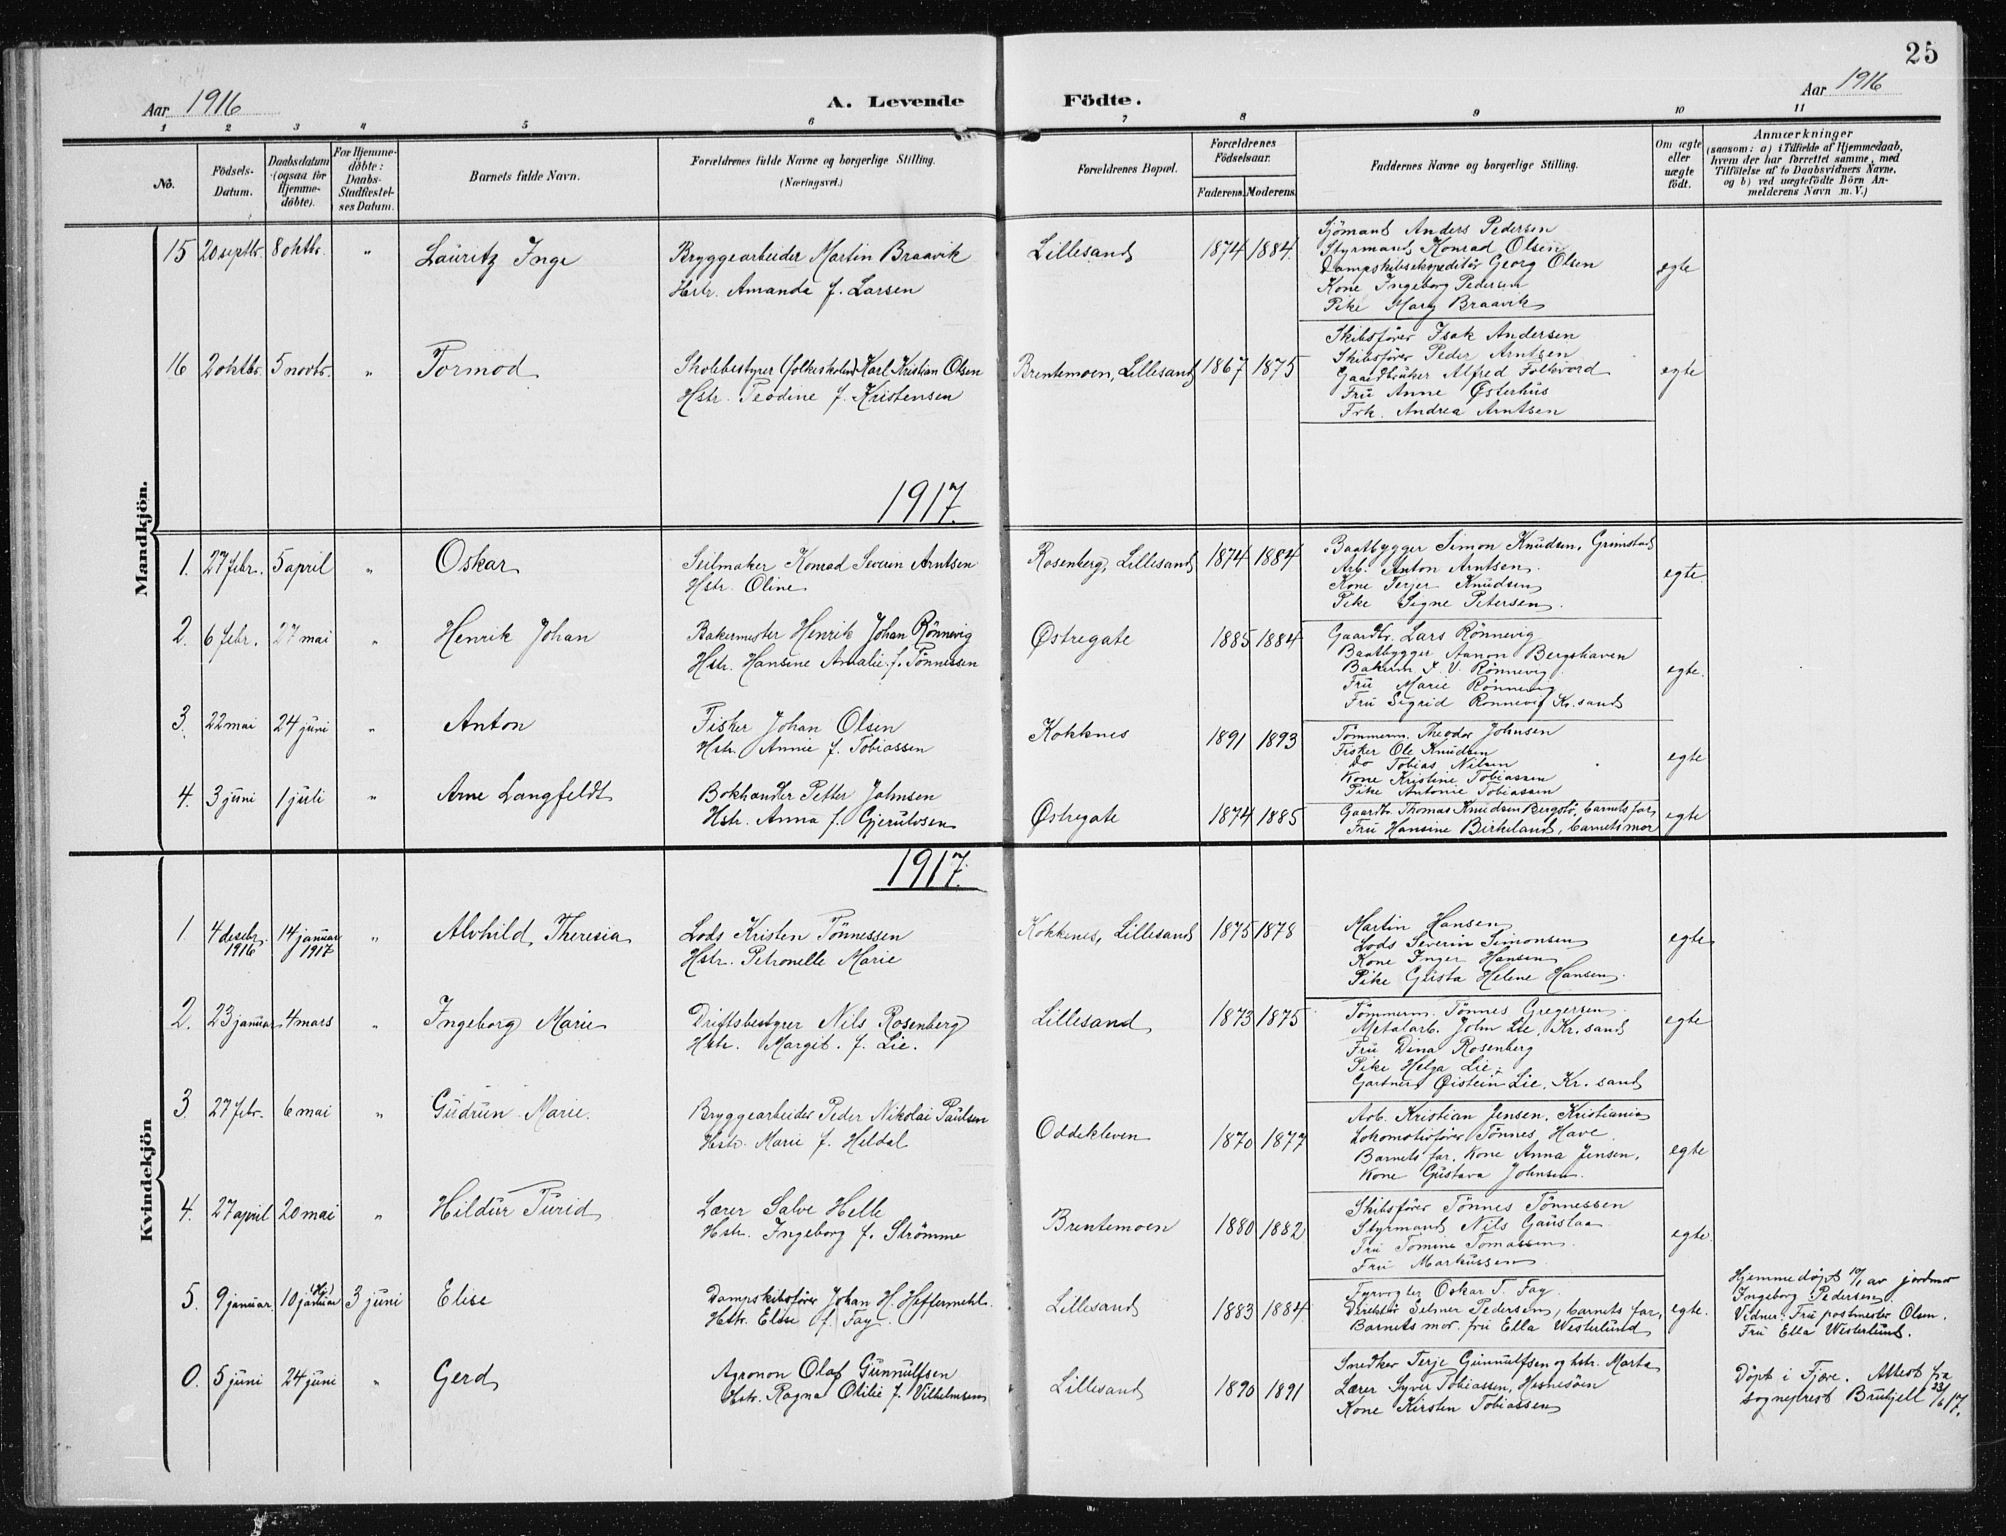 25
Aar 1916
A. Levende Födte.
Aar 1916
1 2 3 4 5 6 7 8 9 10 11
No.
Födsels-
Datum.
Daabsdatum
(ogsaa for
Hjemme-
döbte).
For Hjemme-
döbte:
Daabs-
Stadfæstel-
ses Datum.
Barnets fulde Navn.
Forældrenes fulde Navne og borgerlige Stilling.
(Næringsvei.)
Forældrenes Bopæl.
Forældrenes
Födselsaar.
Faderens. Moderens.
Faddernes Navne og borgerlige Stilling.
Om ægte
eller
uægte
födt.
Anmærkninger
(saasom: a) i Tilfælde af Hjemmedaab,
hvem der har forrettet samme, med
Tilföielse af to Daabsvidners Navne,
og b) ved uægtefödte Börn An-
melderens Navn m. V.)
Mandkjön.
15 20 septbr. 8 oktbr. " Lauritz Inge
Bryggearbeider Martin Braavik
Hstr. Amanda f. Larsen
Lillesand 1874 1884
Sjömand Anders Pedersen
Styrmand Konrad Olsen
Dampskibsekspeditör Georg Olsen
Kone Ingeborg Pedersen
Pike Mary Braavik
egte
16 2 oktbr. 5 novbr. " Tormod
Skolebestyrer (folkeskolen) Karl Kristian Olsen
Hstr. Teodine f. Kristensen
Brentemoen, Lillesand 1867 1875
Skibsförer Isak Andersen
Skibsförer Peder Arntsen
Gaardbruker Alfred Folkvord
Fru Anne Østerhus
Frk. Andrea Arntsen
egte
1917.
1. 27 febr. 5 april " Oskar
Seilmaker Konrad Severin Arntsen
Hstr. Oline
Rosenberg, Lillesand 1874 1884
Baatbygger Simon Knudsen, Grimstad
Arb. Anton Arntsen.
Kone Terjer Knudsen
Pike Signe Petersen.
egte.
2. 6 febr. 27 mai " Henrik Johan
Bakermester Henrik Johan Rönnevig
Hstr. Hansine Amalie f. Tönnessen
Østregate 1885 1884
Gaardbr. Lars Rönnevig
Baatbygger Aanon Bergshaven
Bakerm. J. V. Rönnevig
Fru Marie Rönnevig
Fru Sigrid Rönnevig Kr.sand
egte.
3. 22 mai 24 juni " Anton
Fisker Johan Olsen
Hstr. Annie f. Tobiassen
Kokknes 1891 1893
Tömmerm. Theodor Johnsen
Fisker Ole Knudsen
Do Tobias Nilsen
Kone Kristine Tobiassen
Pike Antonie Tobiassen
egte
4. 3 juni 1 juli " Arne Langfeldt
Bokhandler Petter Johnsen
Hstr. Anna f. Gjerulvsen
Østregate 1874 1885
Gaardbr. Thomas Knudsen Bergstö, barnets far,
Fru Hansine Birkeland, barnets mor
egte
Kvindekjön
1917.
1. 4 desebr. 1916 14 januar 1917 " Alvhild Theresia
Lods Kristen Tönnessen
Hstr. Petronelle Marie
Kokkenes, Lillesand 1875 1878
Martin Hansen
Lods Severin Simonsen
Kone Inger Hansen
Pike Gusta Helene Hansen.
egte
2. 23 januar 4 mars " Ingeborg Marie
Driftsbestyrer Nils Rosenberg
Hstr. Margit. f. Lie.
Lillesand 1873 1875
Tömmerm. Tönnes Gregersen.
Metalarb. John Lie, Kr. sand
Fru Dina Rosenberg
Pike Helga Lie.
Gartner Øistein Lie, Kr. sand
egte
3. 27 febr. 6 mai " Gudrun Marie.
Bryggearbeider Peder Nikolai Paulsen
Hstr. Marie f. Heldal
Oddekleven 1870 1877
Arb. Kristian Jensen, Kristiania
Lokomotivförer Tönnes Have.
Barnets far, Kone Anna Jensen,
Kone Gustava Johnsen.
egte
4. 27 april 20 mai " Hildur Turid
Lærer Salve Helle
Hstr. Ingeborg f. Strömme
Brentemoen 1880 1882
Skibsförer Tönnes Tönnessen
Styrmand Nils Gauslaa
Fru Tomine Tomassen.
Fru Markussen
egte.
5. 9 januar. 10 januar (Hj) 3 juni Elise
Dampskibsförer Johan H. Heffermehl.
Hstr. Elise f. Fay.
Lillesand 1883 1884
Fyrvogter Oskar T. Fay.
Direktör Selmer Pedersen, barnets far,
Barnets mor, fru Ella Westerlund
egte.
Hjemmedöpt 10/1 av jordmor
Ingeborg Pedersen.
Vidner: Fru postmester Olsen.
Fru Ella Westerlund.
0. 5 juni 24 juni " Gerd
Agronon Olaf Gunnulfsen
Hstr. Ragna Otilie f. Vilhelmsen
Lillesand 1890 1891
Snedker Terje Gunnulfsen og hstr. Marta
Lærer Syver Tobiassen, Hesnesöen
Kone Kirsten Tobiassen
Döpt i Fjære. Attest fra
sogneprest Brutjell 23/6 17.